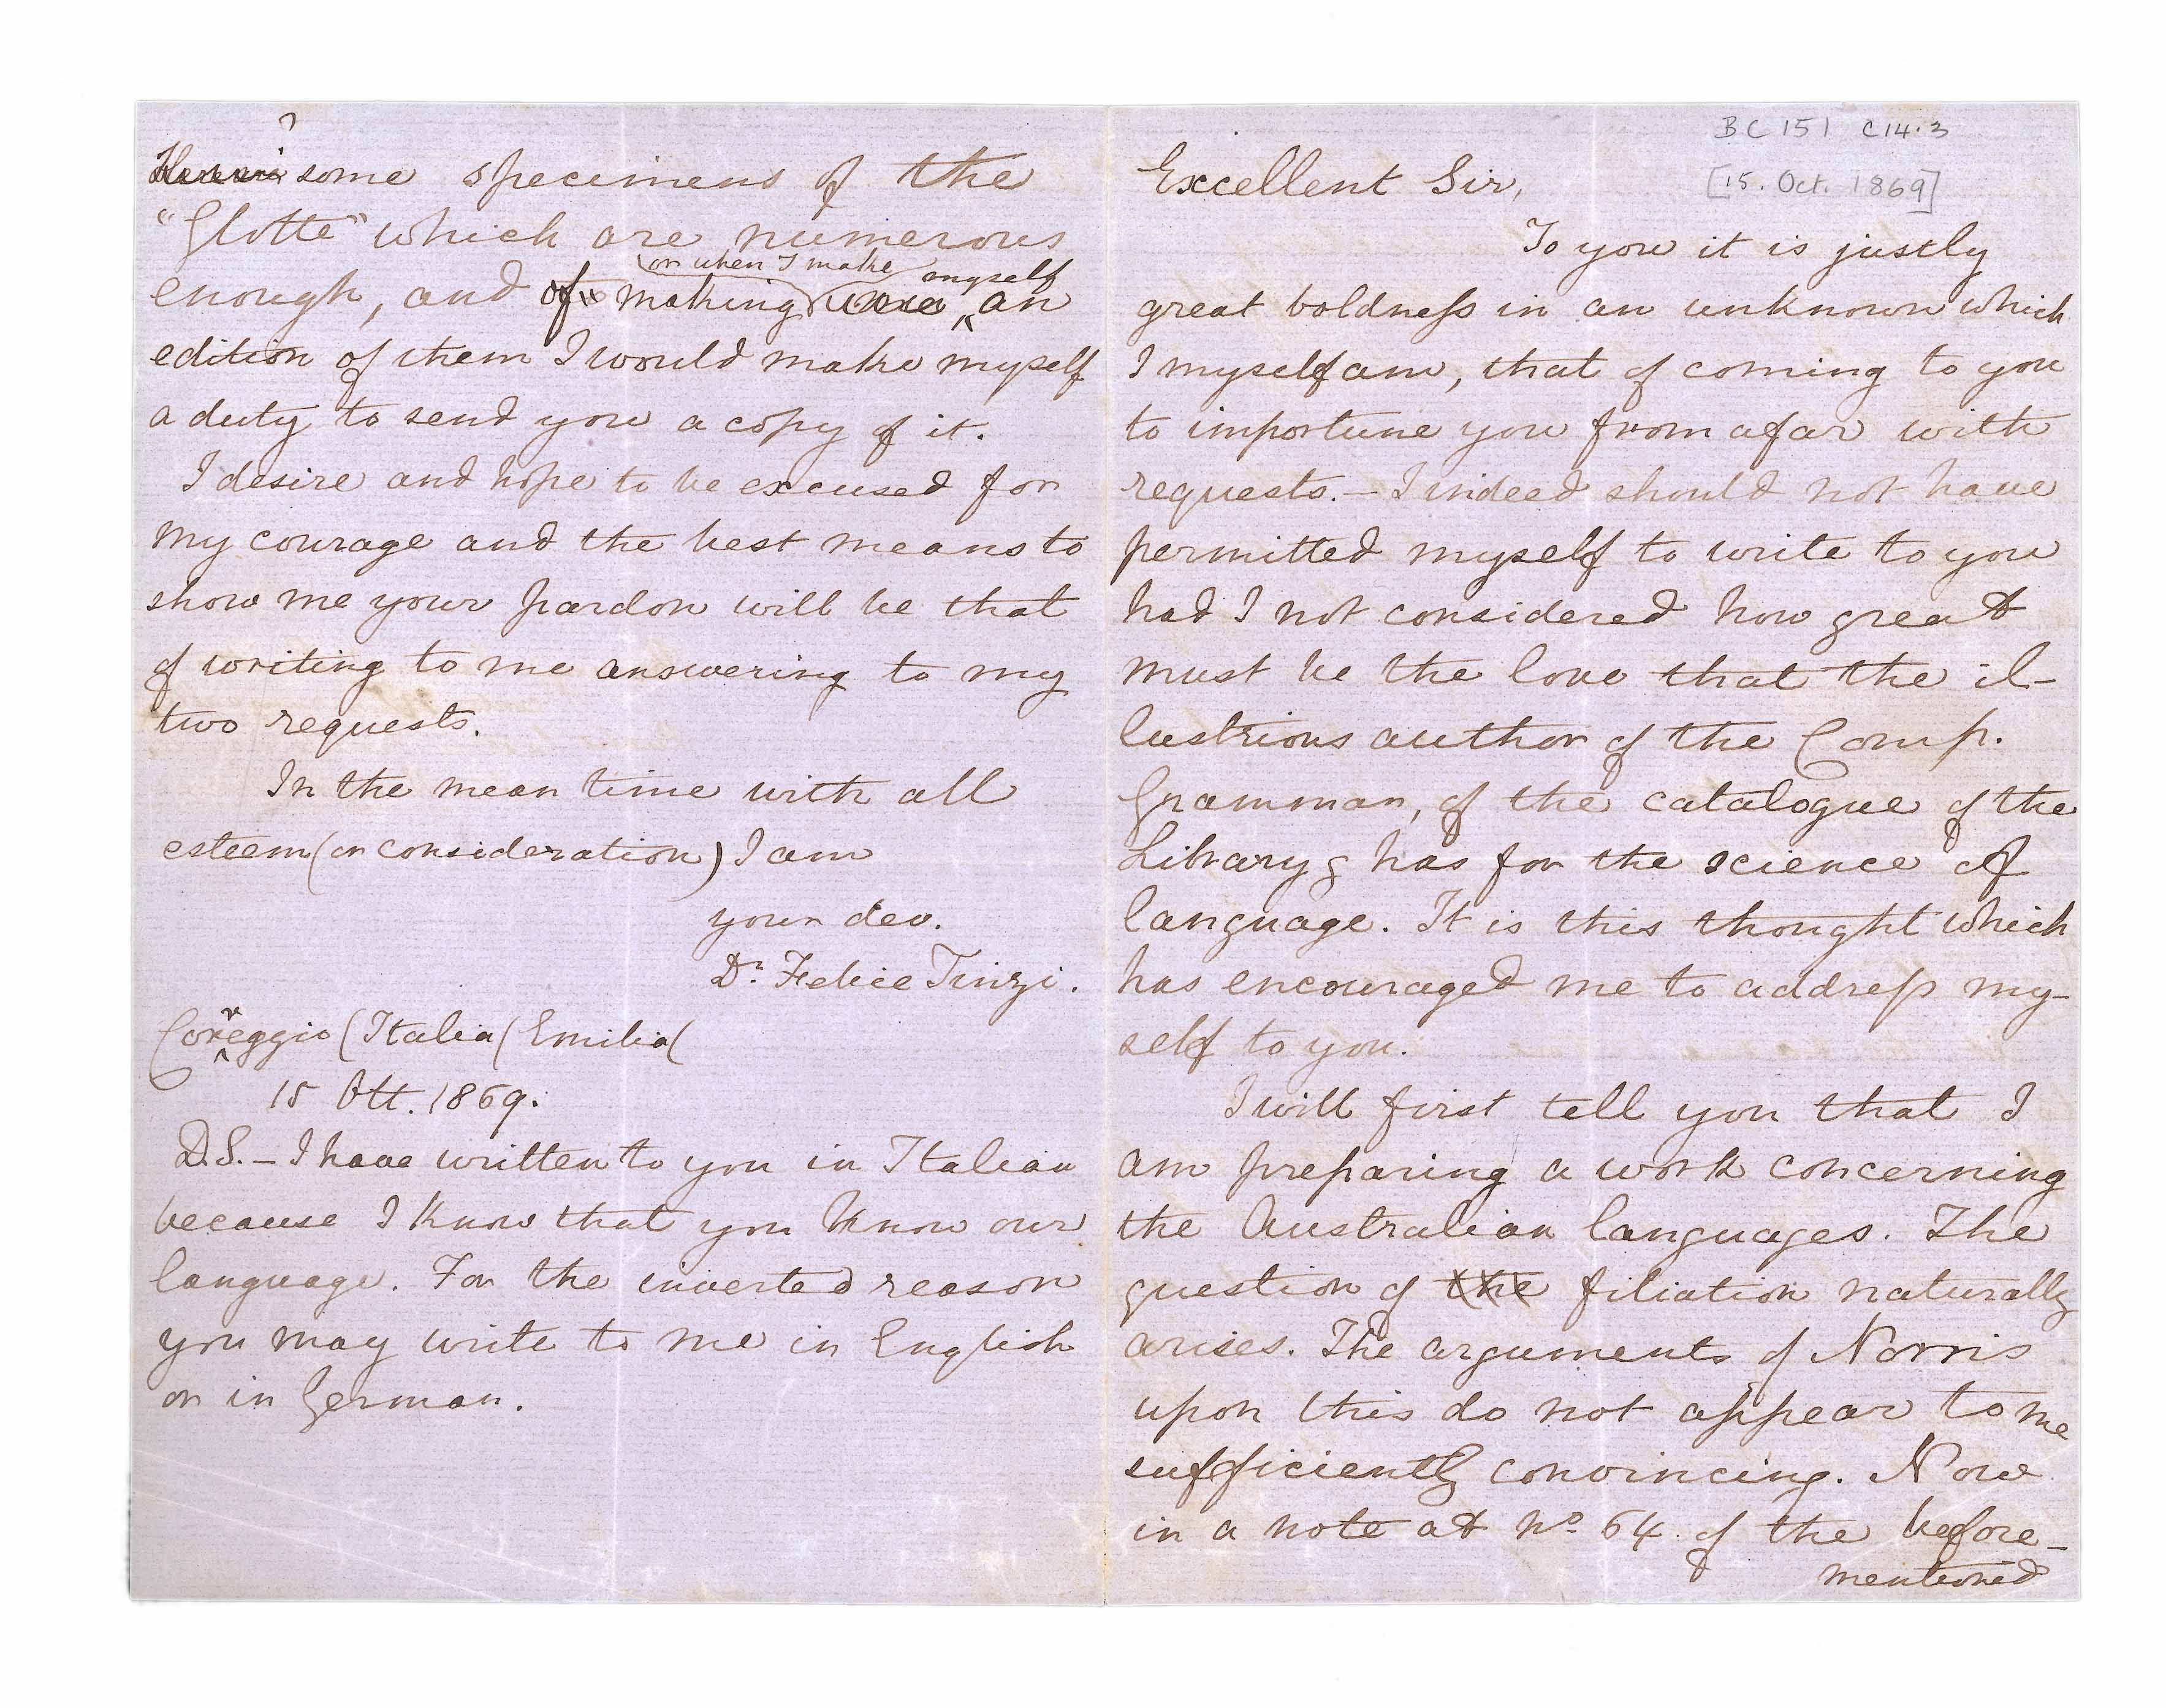 BC 151 C14.3
[15. Oct. 1869]
Excellent Sir,
To you it is justly
great boldness in an unknown which
I myself am, that of coming to you
to importune you from afar with
requests. – I indeed should not have
permitted myself to write to you
had I not considered how great
must be the love that the il-
lustrious author of the Comp.
Grammar, of the catalogue of the
Library has for the science of
language. It is this thought which
has encouraged me to address my-
self to you.
I will first tell you that I
am preparing a work concerning
the Australian languages. The
question of the filiation naturally
arises. The arguments of Norris
upon this do not appear to me
sufficiently convincing. Now
in a note at No. 64 of the before-
mentioned
?
some specimens of the
"Glotte" which are numerous
(or when I make myself
enough, and of making an
edition of them I would make myself
a duty to send you a copy of it.
I desire and hope to be excused for
my courage and the best means to
show me your pardon will be that
of writing to me answering to my
two requests.
In the mean time with all
esteem (or consideration) I am
your dev.
Dr. Felice Tinzi.
Correggio (Italia (Emilia(
15 Ott. 1869.
D.S. – I have written to you in Italian
because I know that you know our
language. For the inverted reason
you may write to me in English
or in German.